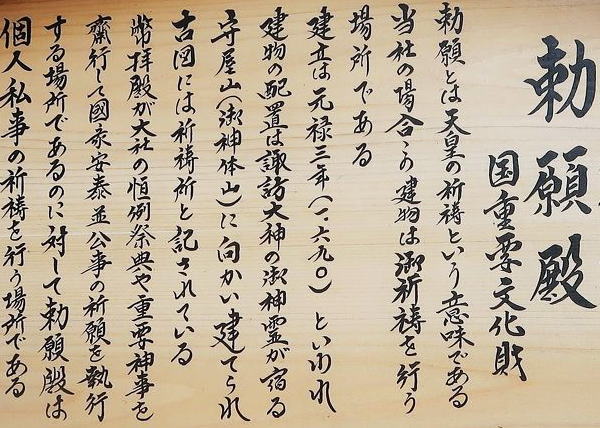 勅願殿
国重要文化財
勅願とは天皇の祈祷という意味である
当社の場合この建物は御祈祷を行う
場所である
建立は元禄三年(一六九〇)といわれ
建物の配置は諏訪大神の御神霊が宿る
守屋山(御神体山)に向かい建てられ
古図には祈祷所と記されている
幣拝殿が大社の恒例祭典や重要神事を
齋行して國家安泰並公事の祈願を執行
する場所であるのに対して勅願殿は
個人私事の祈祷を行う場所である